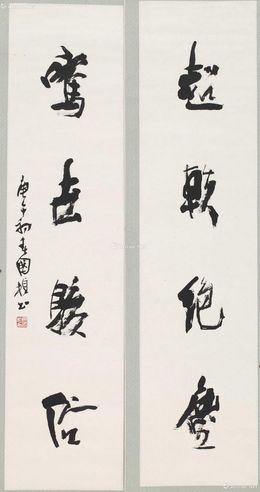 超軼絕塵
驚世駭俗
庚午初春國